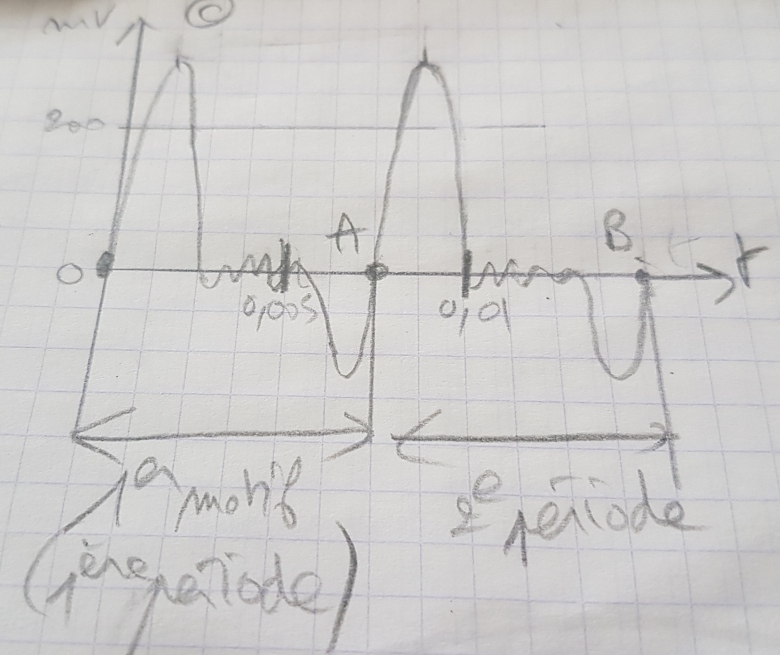 mV ©
200
A
B
0
t
0,005
0,01
1er motif
(1ère période)
2e période